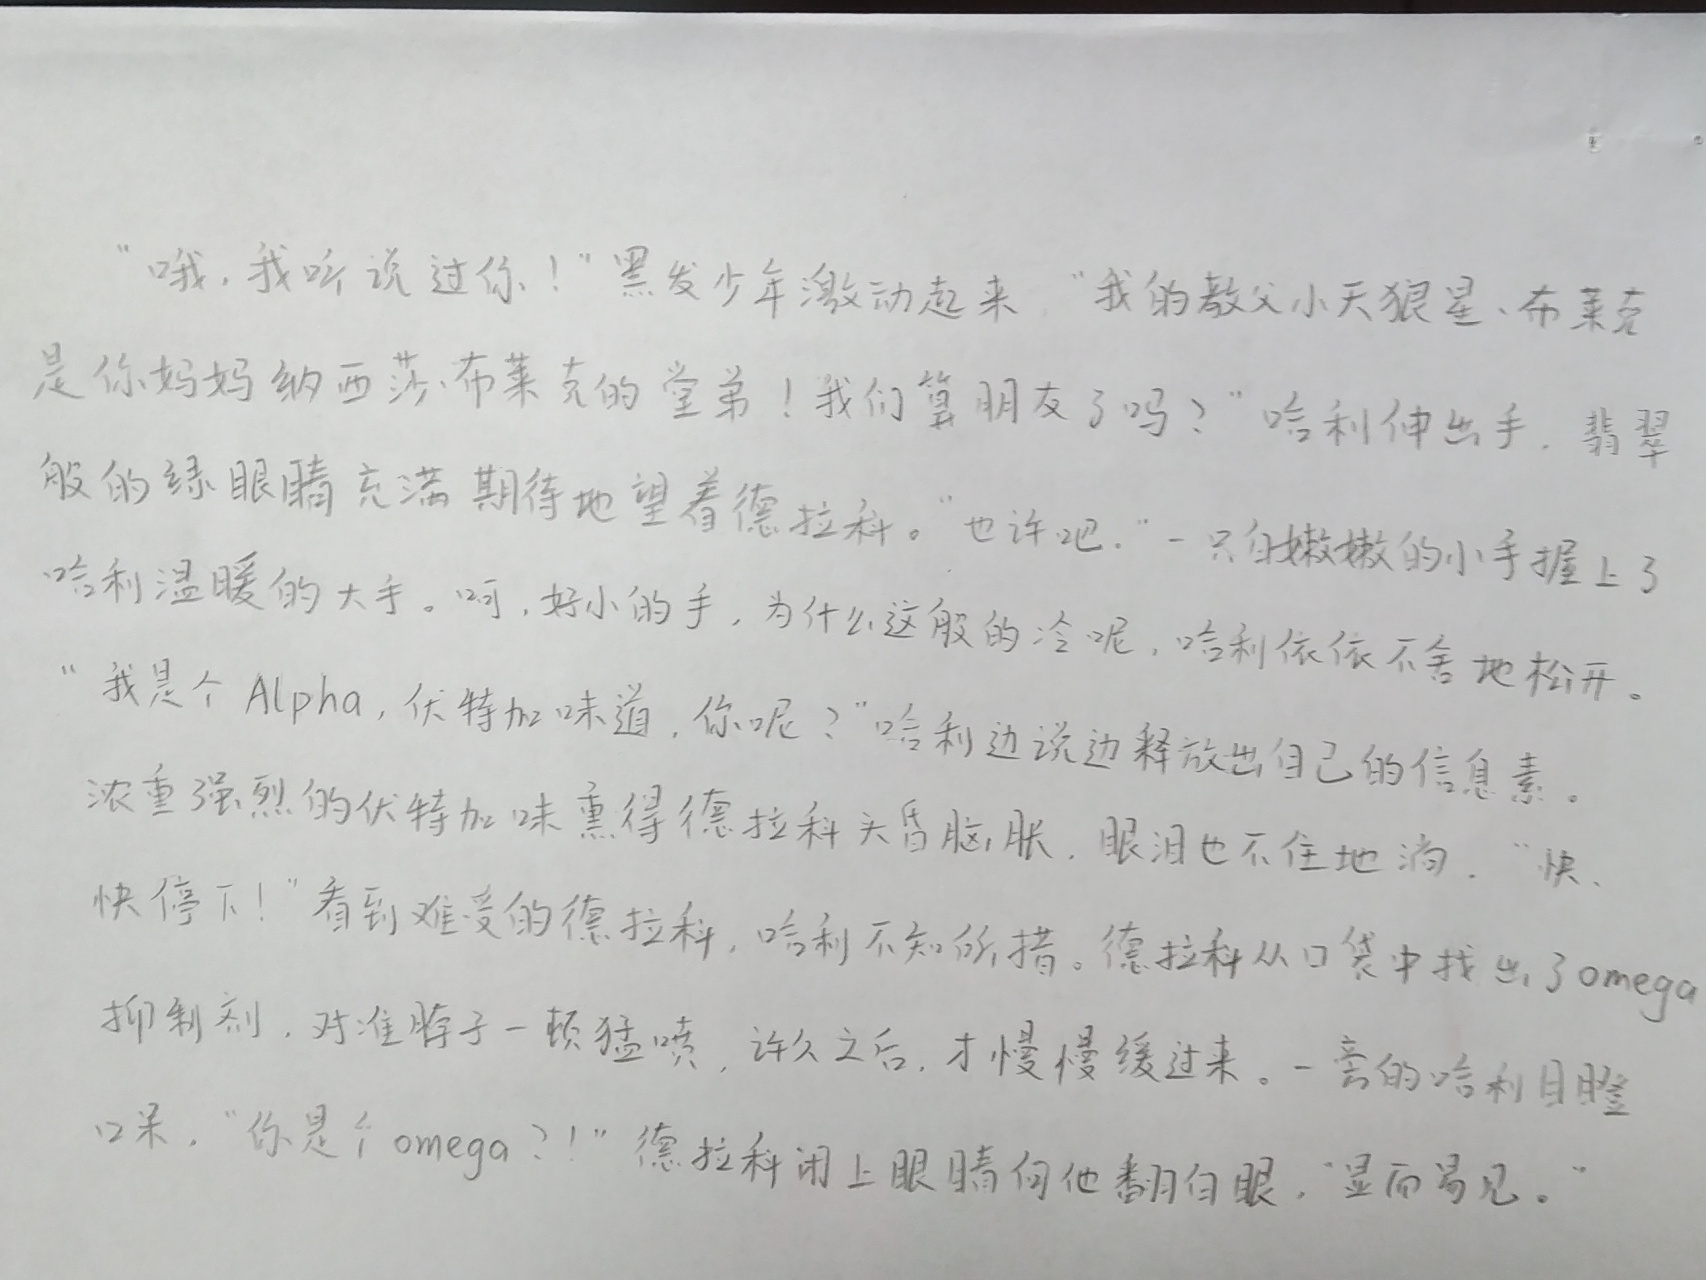 “哦，我听说过你！”黑发少年激动起来，“我的教父小天狼星、布莱克
是你妈妈纳西莎、布莱克的堂弟！我们算朋友了吗？”哈利伸出手，翡翠
般的绿眼睛充满期待地望着德拉科。“也许吧.”一只白嫩嫩的小手握上了
哈利温暖的大手。呵，好小的手，为什么这般的冷呢，哈利依依不舍地松开。
“我是个Alpha，伏特加味道，你呢？”哈利边说边释放出自己的信息素。
浓重强烈的伏特加味熏得德拉科头昏脑胀，眼泪也不住地淌，“快、
快停下！”看到难受的德拉科，哈利不知所措。德拉科从口袋中找出了omega
抑制剂，对准脖子一顿猛喷，许久之后，才慢慢缓过来。一旁的哈利目瞪
口呆，“你是个omega？！”德拉科闭上眼睛向他翻白眼，“显而易见。”